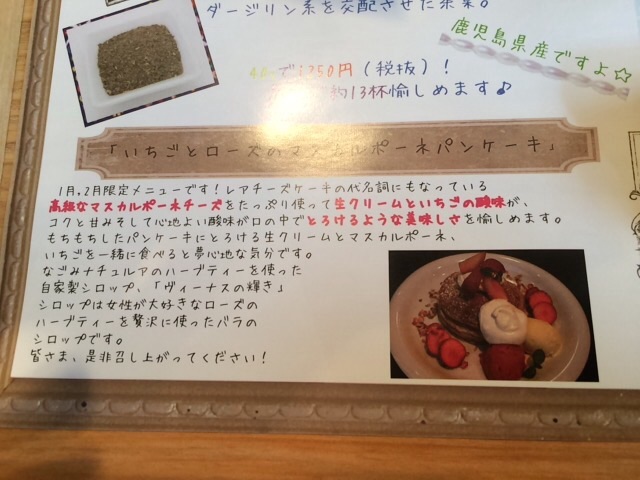 ダージリン系を交配させた茶葉。
鹿児島県産ですよ☆
で1250円（税抜）！
約13杯愉しめます♪
「いちごとローズのマスカルポーネパンケーキ」
1月,2月限定メニューです！レアチーズケーキの代名詞にもなっている
高級なマスカルポーネチーズをたっぷり使って生クリームといちごの酸味が、
コクと甘みそして心地よい酸味が口の中でとろけるような美味しさを愉しめます。
もちもちしたパンケーキにとろける生クリームとマスカルポーネ、
いちごを一緒に食べると夢心地な気分です。
なごみナチュルアのハーブティーを使った
自家製シロップ、「ヴィーナスの輝き」
シロップは女性が大好きなローズの
ハーブティーを贅沢に使ったバラの
シロップです。
皆さま、是非召し上がってください！